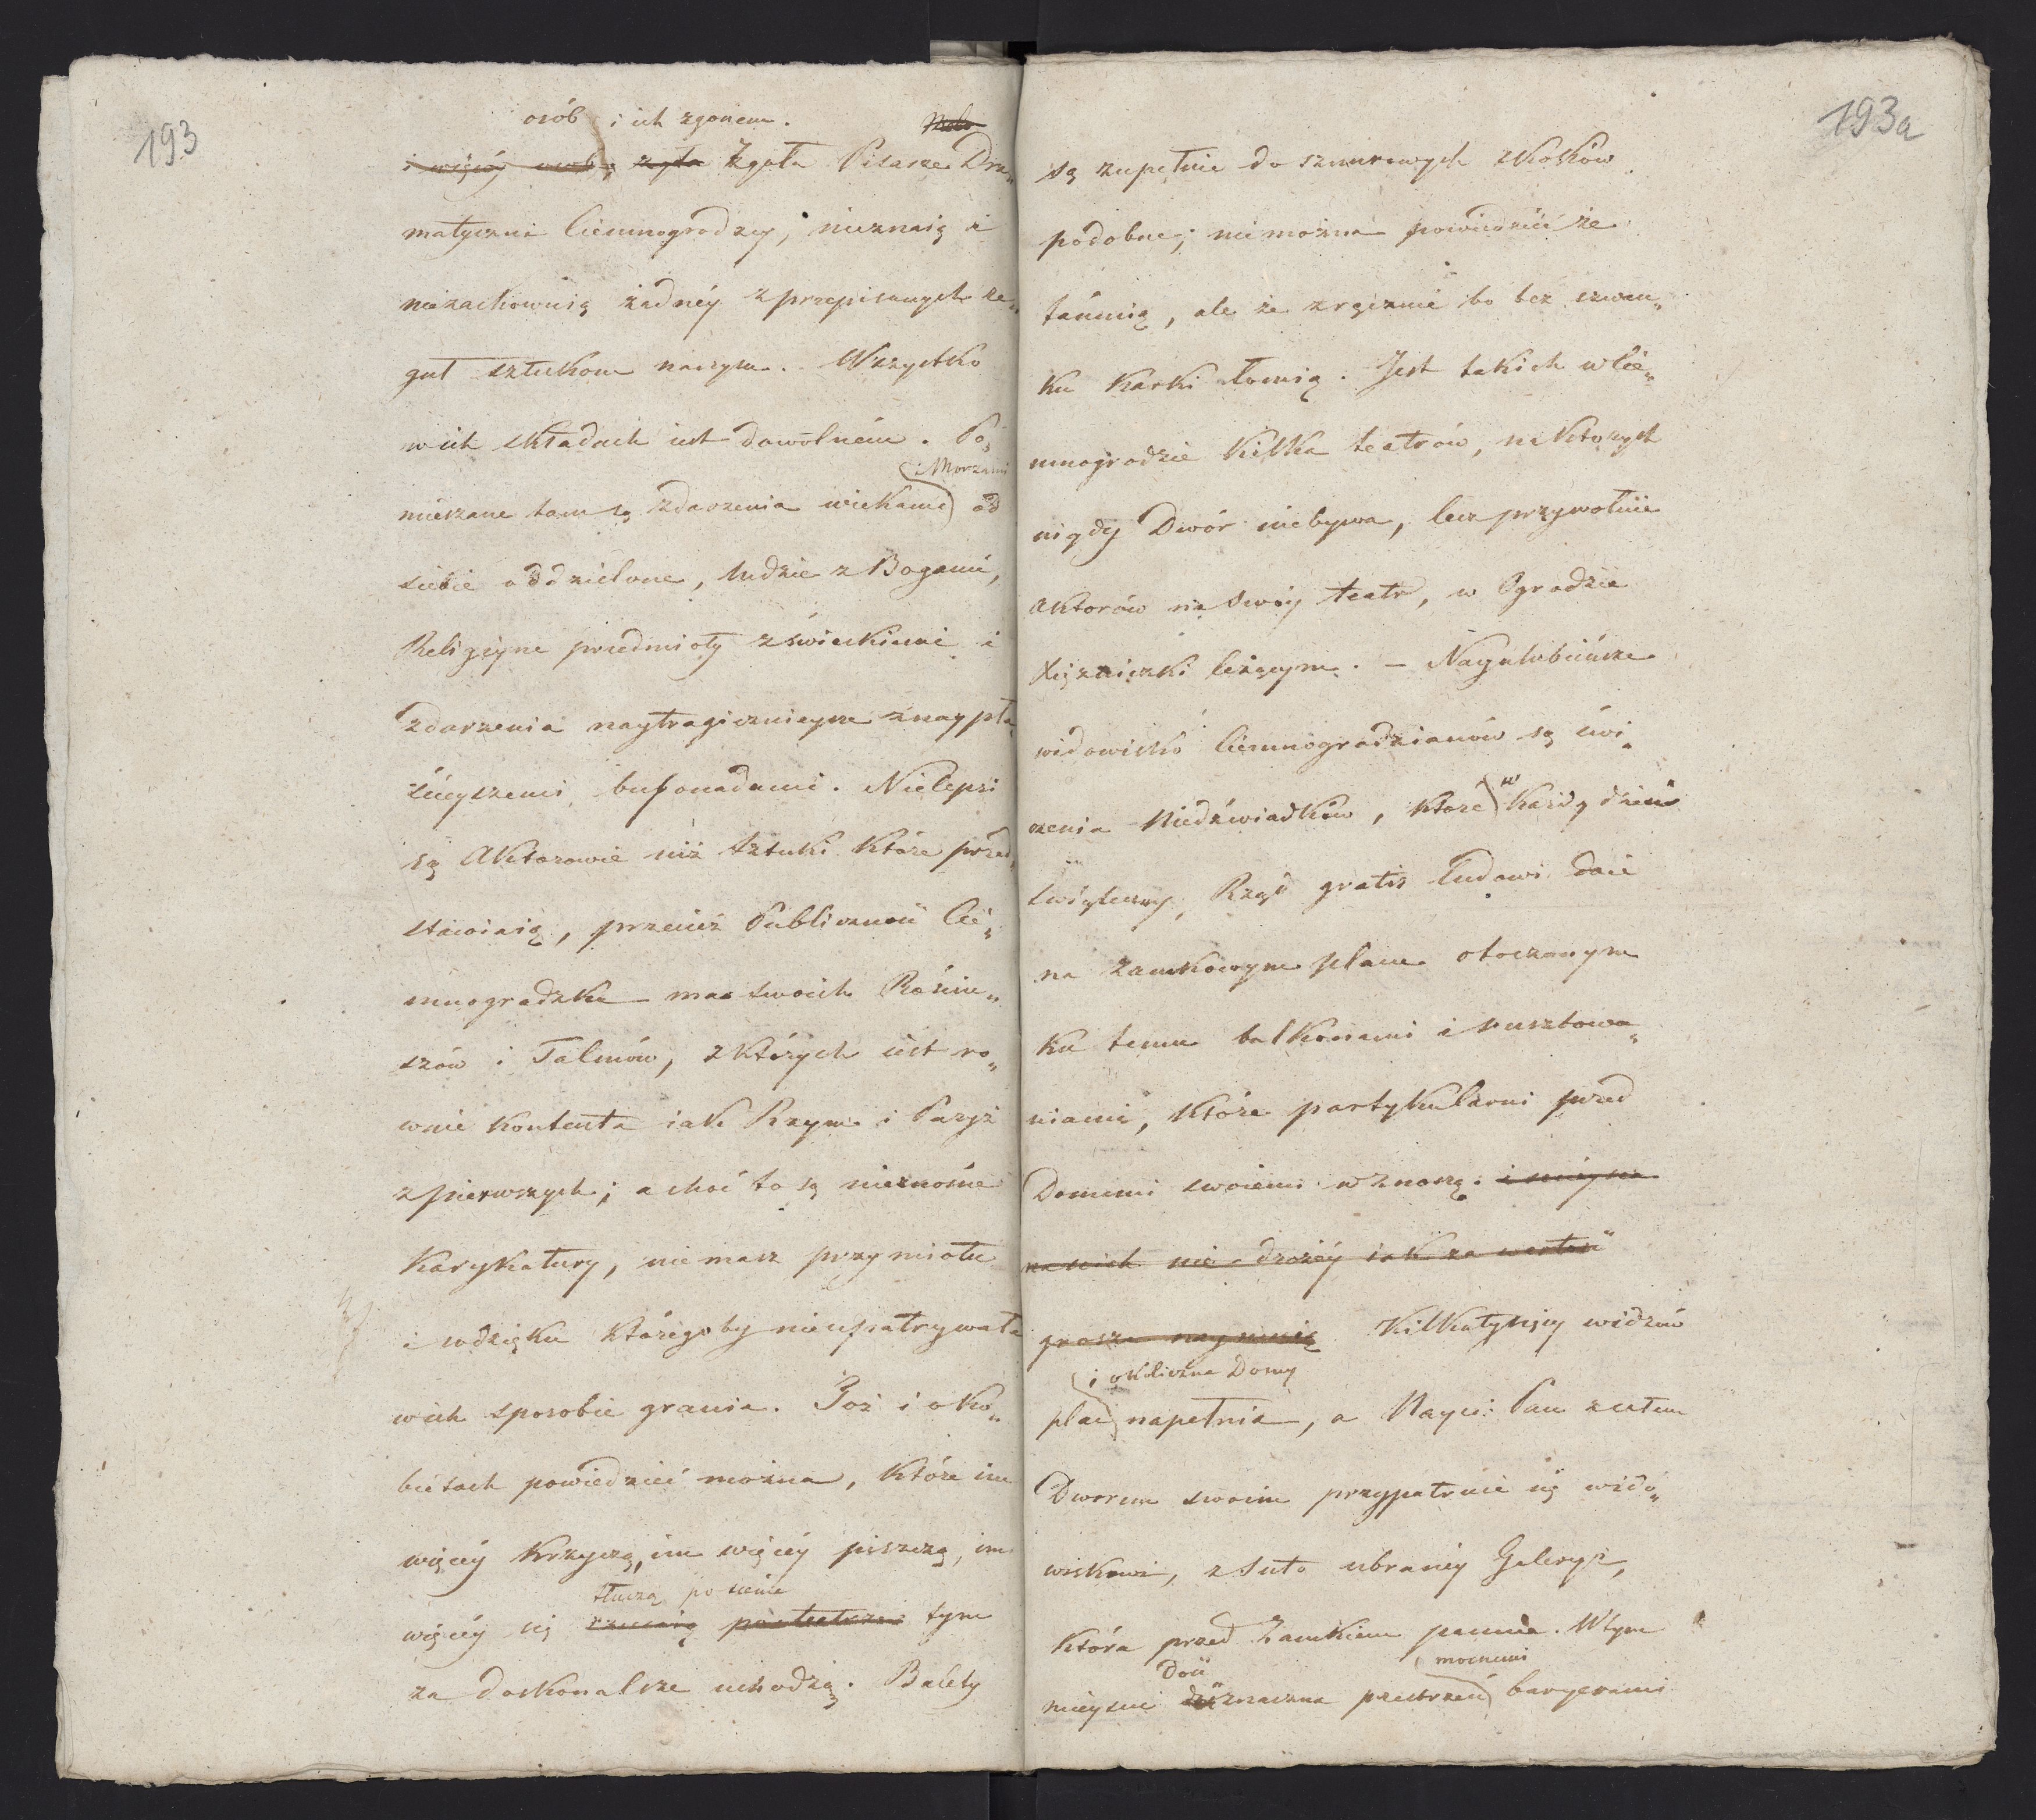 193
osób i ich zgonem.
i więcéj osób; zgła Zgoła Pisarze Dra„
matyczni Ciemnogrodzcy, nieznaią i
niezachowuią żadnéy z przepisanych re„
guł sztukom naszym. Wszystko
w ich składach iest dowolném. Po„
i Morzami
mieszane tam są zdarzenia wiekami od
siebie oddzielone, ludzie z Bogami,
Religiyne przedmioty z świeckiemi i
zdarzenia naytragicznieysze z naypła„
skieyszemi bufonadami. Nielepsi
są Aktorowie niż sztuki które przed„
stawiaią, przecież Publiczność Cie„
mnogrodzka ma swoich Rosciu„
szów i Talmów, z których iest ro„
wnie kontenta iak Rzym i Paryż
z pierwszych; a choć to są nieznośne
karykatury, nie masz przymiotu
i wdzięku któregoby nieupatrywała
w ich sposobie grania. Toż i o ko„
bietach powiedzieć można, które im
więcéy krzyczą, im więcéy piszczą, im
tłuczą po scenie
więcéy się rzucaią po teatrze tym
za doskonalsze uchodzą. Balety
193a
są zupełnie do sznurowych skoków
podobne; niemożna powiedzieć że
tańcuią, ale że zręcznie bo bez szwan„
ku karki łomią. Jest takich w Cie„
mnogrodzie kilka teatrów, na których
nigdy Dwór niebywa, lecz przywołuie
aktorów na swóy teatr, w Ogrodzie
Xiężniczki leżącym. – Nayulubieńsze
widowisko Ciemnogrodzianów są ćwi„
w
czenia Niedźwiadków, które każdy dzień
świąteczny, Rząd gratis Ludowi daie
na zamkowym placu otoczonym
ku temu balkonami i rusztowa„
niami, które partykularni przed
Domami swoiemi wznoszą. i mieysca
na nich nie drożéy iak za wartość
grosza naymuią Kilkatysięcy widzów
i okoliczne Domy
plac napełnia, a Nayci: Pan z całem
Dworem swoim przypatruie się wido„
wiskowi, z suto ubranéy Galeryi,
która przed Zamkiem panuie. W tym
Dość mocnemi
mieyscu znaczna przestrzeń baryerami